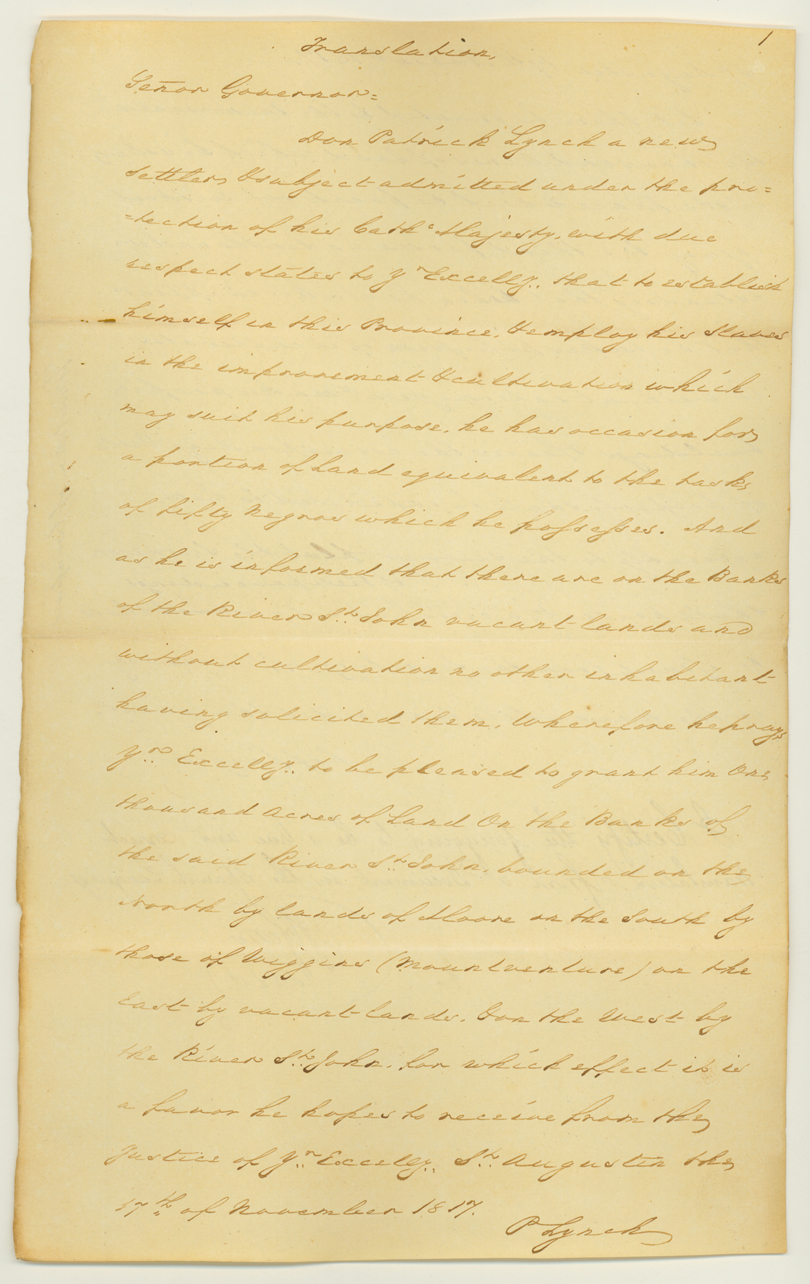 1
Translation,
Señor Governor=
Don Patrick Lynch a new
settler, & subject admitted under the pro=
=tection of his Cathc. Majesty, with due
respect states to Yr. Excelly., that to establish
himself in this Province, & employ his slaves
in the improvement & cultivation which
may suit his purpose, he has occasion for
a portion of Land equivalent to the tasks
of fifty Negroes which he possesses. And
as he is informed that there are on the Banks
of the River St. John vacant lands and
without cultivation no other inhabitant
having solicited them, Wherefore he prays
Yr. Excelly. to be pleased to grant him One
thousand Acres of Land On the Banks of
the said River St. John, bounded on the
North by lands of Moore on the South by
those of Wiggins (Mountventure) on the
East by vacant lands, & on the West by
the River St. John, for which effect it is
a favor he hopes to receive from the
Justice of Yr. Excelly., St. Augusten the
17th of November 1817.
P Lynch